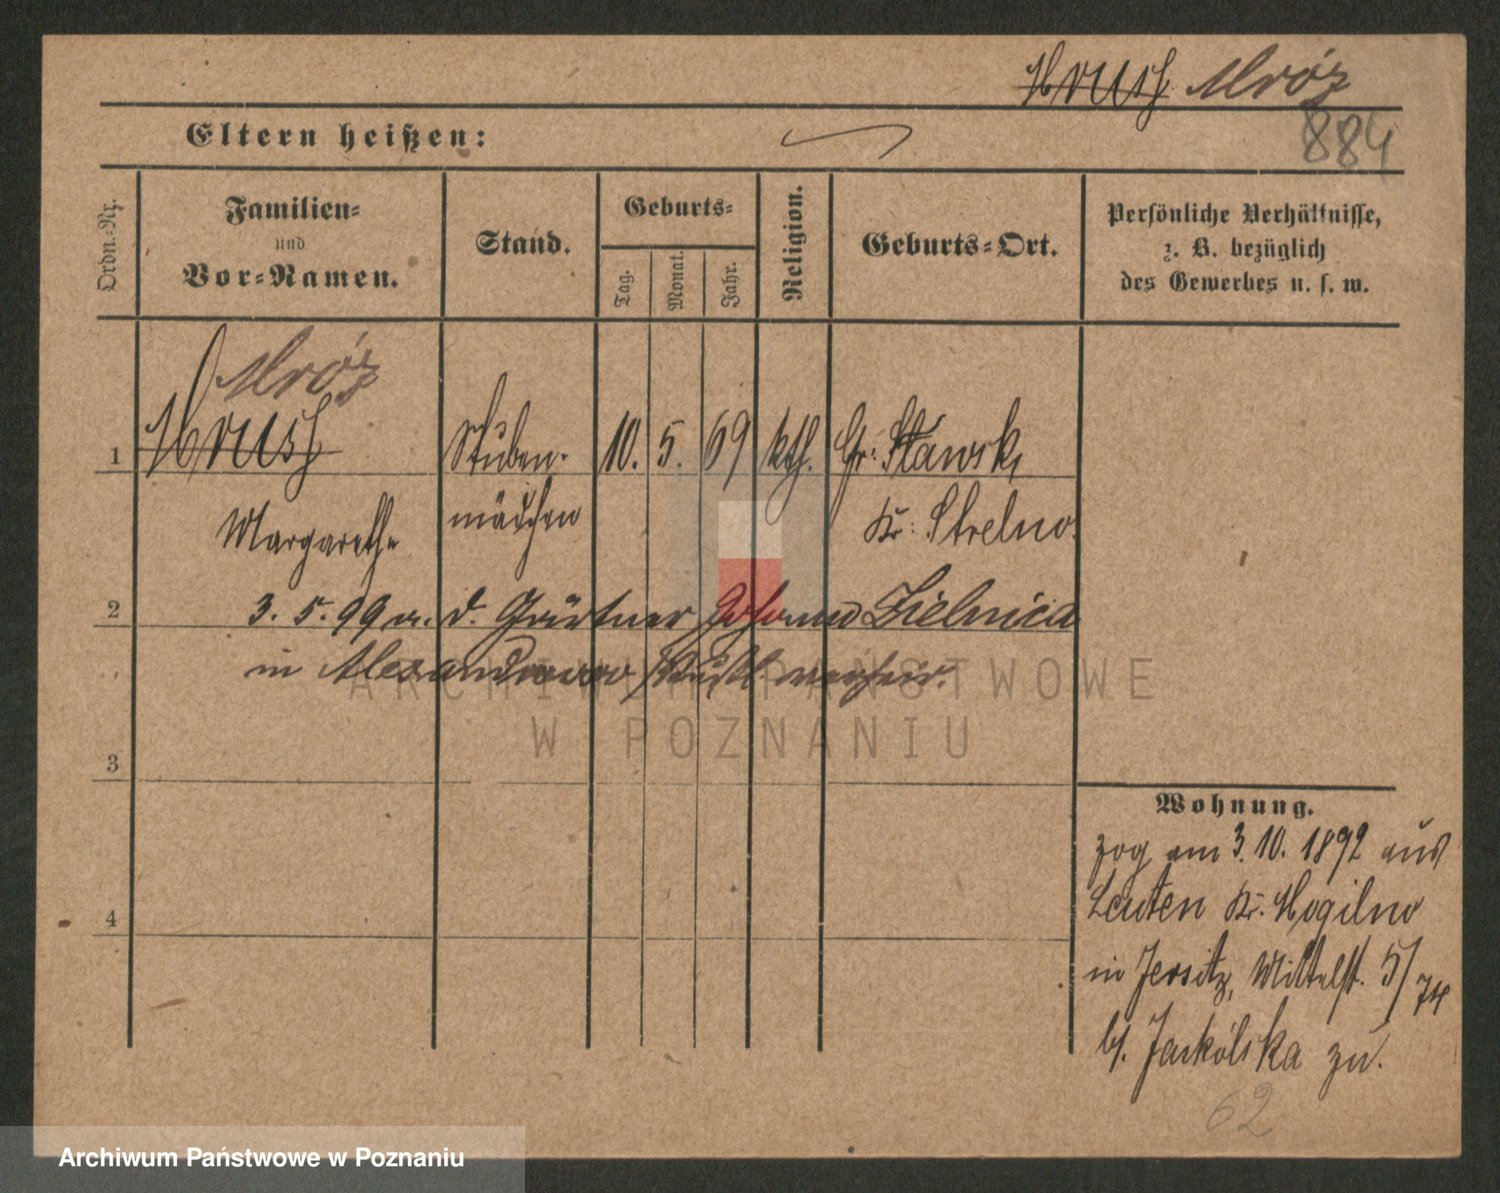 Mrusch Mróz
Eltern heißen:
884
Ordn.-Nr.
Familien-
und
Vor-Namen.
Stand.
Geburts-
Tag.
Monat.
Jahr.
Religion.
Geburts-Ort.
Persönliche Verhältnisse,
z. B. bezüglich
des Gewerbes u. s. w.
Mróz
1 Mrusch Stuben- 10. 5. 69 kth. Gr: Sławsk,
Margareth mädchen Kr: Strelno.
2 3. 5. 99 m. d. Gärtner Johann Zielnica
in Alexandrowo verheir.
3
4
Wohnung.
zog am 3. 10. 1892 aus
Leuten Kr. Mogilno
in Jersitz, Mittelst. 5/
74
bei Jaskólska zu.
62
ARCHIWUM PAŃSTWOWE
W POZNANIU
Archiwum Państwowe w Poznaniu